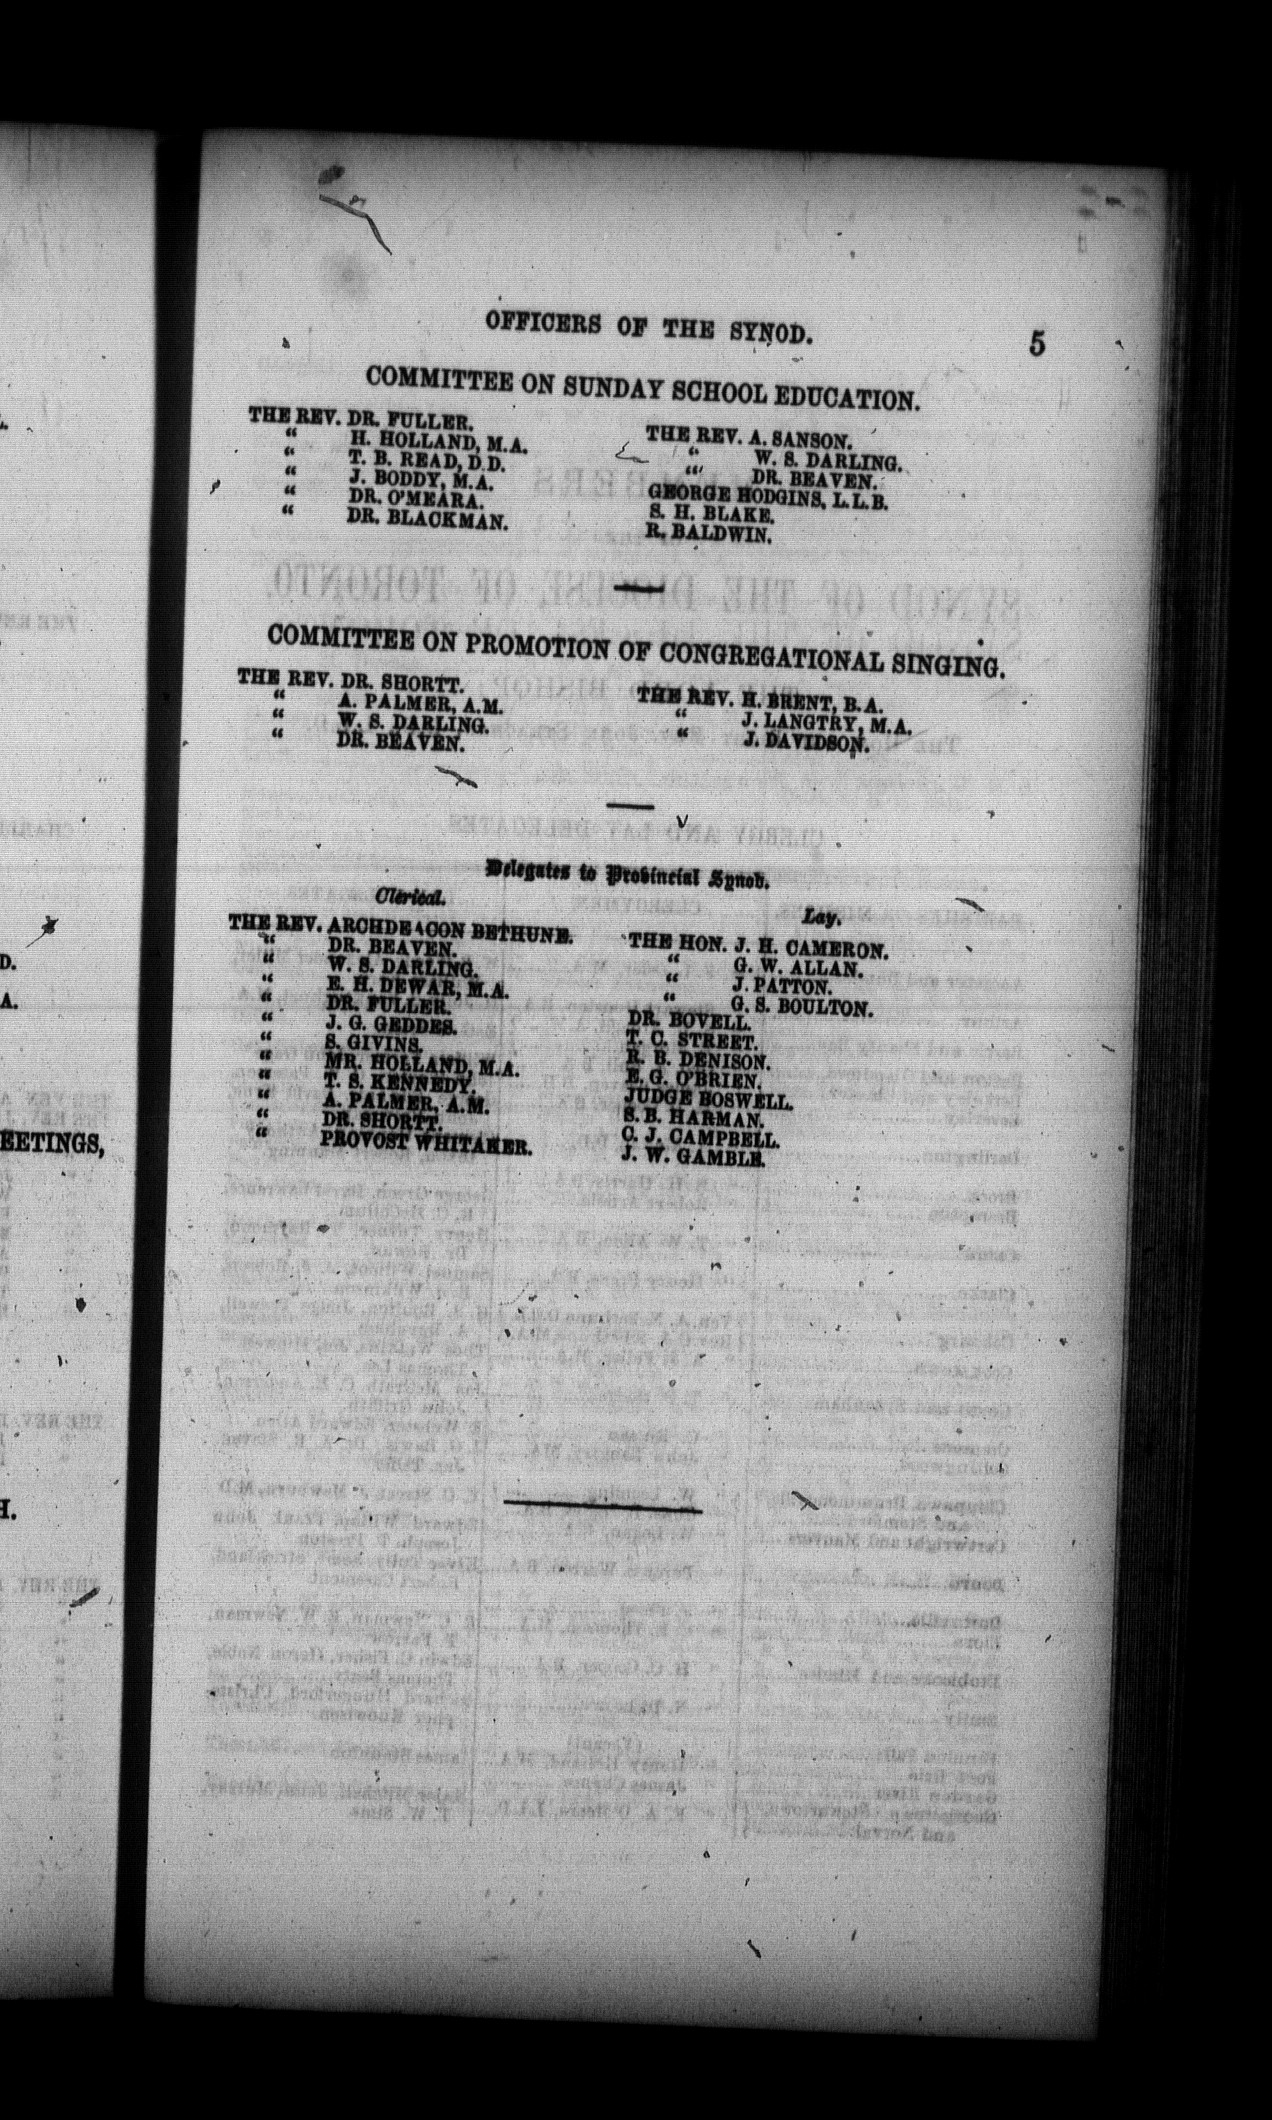 OFFICERS OF THE SYNOD.
5
COMMITTEE ON SUNDAY SCHOOL EDUCATION.
THE REV. DR. FULLER.
" H. HOLLAND, M.A.
" T. B. READ, D.D.
" J. BODDY, M.A.
" DR. O'MEARA.
" DR. BLACKMAN.
THE REV. A. SANSON.
" W. S. DARLING.
" DR. BEAVEN.
GEORGE HODGINS, L.L.B.
S. H. BLAKE.
R. BALDWIN.
COMMITTEE ON PROMOTION OF CONGREGATIONAL SINGING.
THE REV. DR. SHORTT.
" A. PALMER, A.M.
" W. S. DARLING.
" DR. BEAVEN.
THE REV. H. BRENT, B.A.
" J. LANGTRY, M.A.
" J. DAVIDSON.
Delegates to Provincial Synod.
Clerical.
THE REV. ARCHDEACON BETHUNE.
" DR. BEAVEN.
" W. S. DARLING.
" E. H. DEWAR, M.A.
" DR. FULLER.
" J. G. GEDDES.
" S. GIVINS.
" MR. HOLLAND, M.A.
" T. S. KENNEDY.
" A. PALMER, A.M.
" DR. SHORTT.
" PROVOST WHITAKER.
Lay.
THE HON. J. H. CAMERON.
" G. W. ALLAN.
" J. PATTON.
" G. S. BOULTON.
DR. BOVELL.
T. C. STREET.
R. B. DENISON.
E. G. O'BRIEN.
JUDGE BOSWELL.
S. B. HARMAN.
C. J. CAMPBELL.
J. W. GAMBLE.
D.
A.
EETINGS,
H.